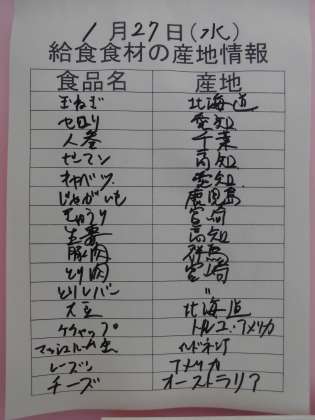 1月27日(水)
給食食材の産地情報
食品名 産地
玉ねぎ 北海道
セロリ 愛知
人参 千葉
ピーマン 高知
キャベツ 愛知
じゃがいも 鹿児島
きゅうり 宮崎
生姜 高知
豚肉 群馬
とり肉 宮崎
とりレバー 〃
大豆 北海道
ケチャップ トルコ・アメリカ
マッシュルーム缶
レーズン アメリカ
チーズ オーストラリア